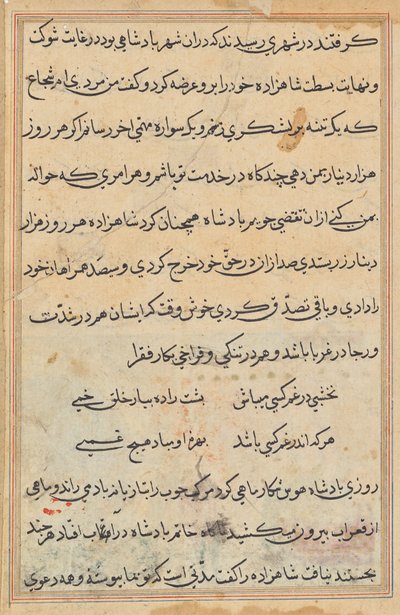 گرفتند در شهری رسیدند که دران شهر پادشاهی بود در غایت شوکت
و نهایت بسطت شاهزاده خود را برو عرضه کرد و گفت من مردی‌ام شجاع
که یک تنه بر لشکری زنم و یک سواره مهمی اخر رسانم اگر هر روز
هزار دینار بمن دهی چندگاه در خدمت تو باشم و هر امری که حواله
بمن کنی از ان تفصی جویم پادشاه همچنان کرد شاهزاده هر روز هزار
دینار زر بستدی صد ازان در حق خود خرج کردی و سیصد همراهان خود
را دادی و باقی تصدق کردی خوش وقت کسایشان هم در شدت
و رجا در غربا باشد و هم در تنگی و فراخی بکار فقرا
نخشبی در غم کسی میباش خمی
هر که اندر غم کسی باشد نبود او بیاد هیچ غمی
روزی پادشاه هوس شکار ماهی کرد مرکب چوب را بتازیانه باد می راند و ماهی
از قعر اب بیرون می کشید ناگاه خاتم پادشاه در اب افتاد هرچند
بجستند نیافت شاهزاده را گفت مدتی است که تو بما پیوسته و همه دعوی